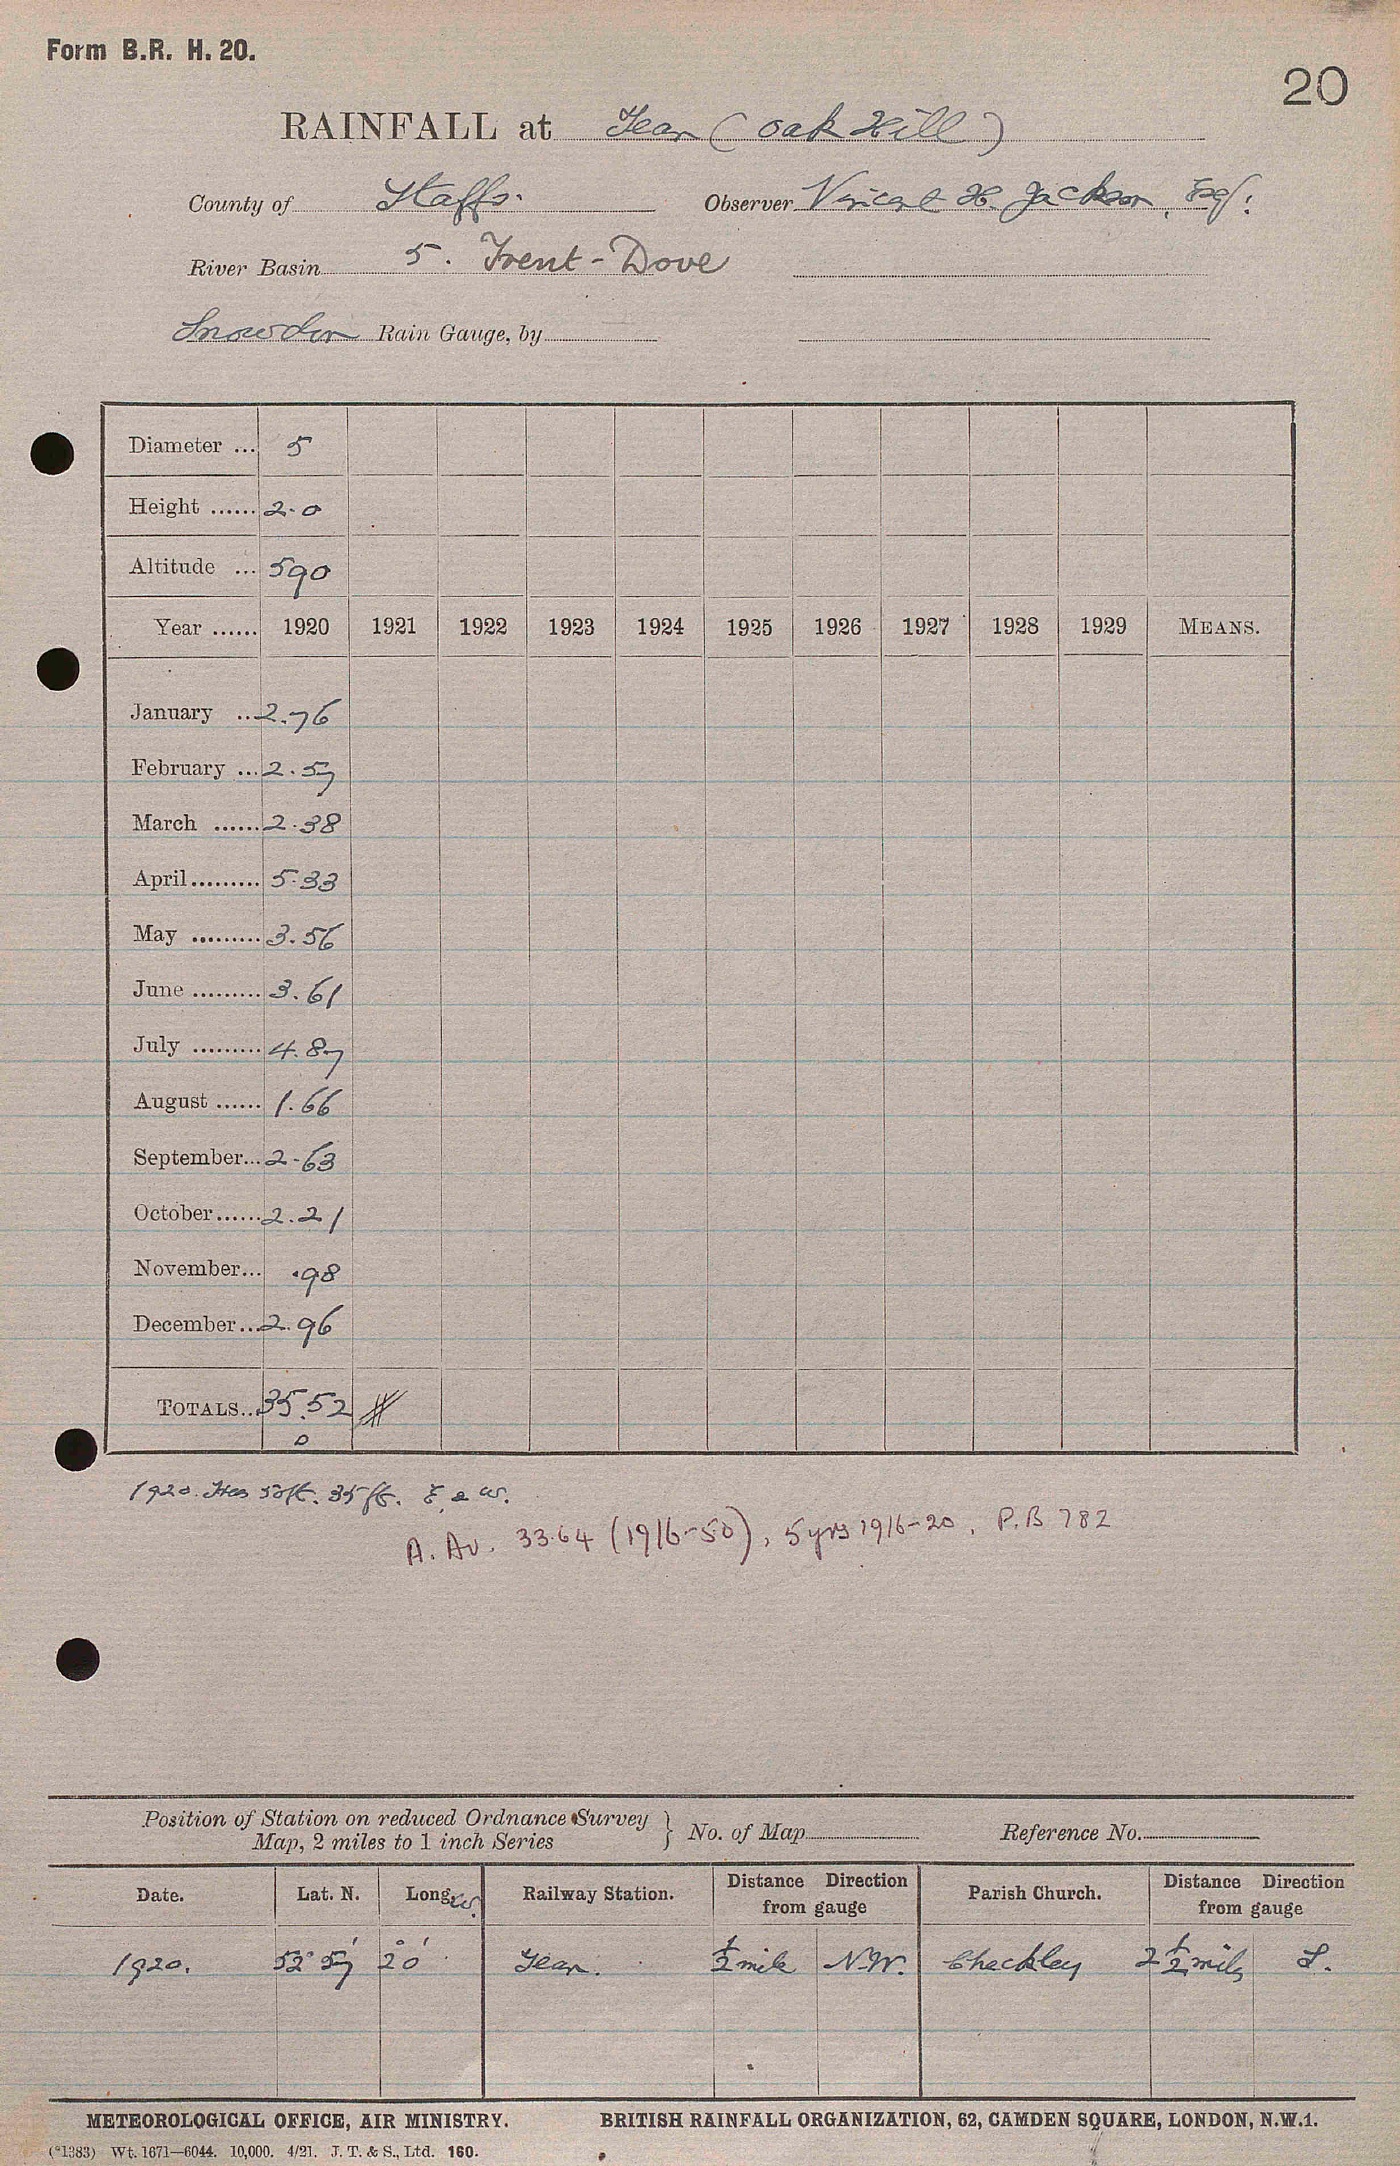 Form B.R. H. 20.
20
RAINFALL at Tean (Oak Hill)
County of Staffs. Observer Vincent H. Jackson, Esq:
River Basin 5. Trent-Dove
Snowdon Rain Gauge, by
Diameter ... 5
Height ...... 2.0
Altitude ... 590
Year ...... 1920 1921 1922 1923 1924 1925 1926 1927 1928 1929 MEANS.
January ... 2.76
February ... 2.57
March ...... 2.38
April ......... 5.33
May ......... 3.56
June ......... 3.61
July ......... 4.87
August ...... 1.66
September... 2.63
October...... 2.21
November... .98
December... 2.96
TOTALS.. 35.52
0
1920. Trees 50ft. 35ft. E. & W.
A. Av. 33.64 (1916-50), 5 yrs 1916-20. P.B 782
Position of Station on reduced Ordnance Survey
Map, 2 miles to 1 inch Series } No. of Map Reference No.
Date. Lat. N. Long. W. Railway Station. Distance Direction from gauge Parish Church. Distance Direction from gauge
1920. 52° 57' 2° 0' Tean. ½ mile N.W. Checkley 2½ miles S.
METEOROLOGICAL OFFICE, AIR MINISTRY. BRITISH RAINFALL ORGANIZATION, 62, CAMDEN SQUARE, LONDON, N.W.1.
(*1383) Wt. 1671—6044. 10,000. 4/21. J. T. & S., Ltd. 160.